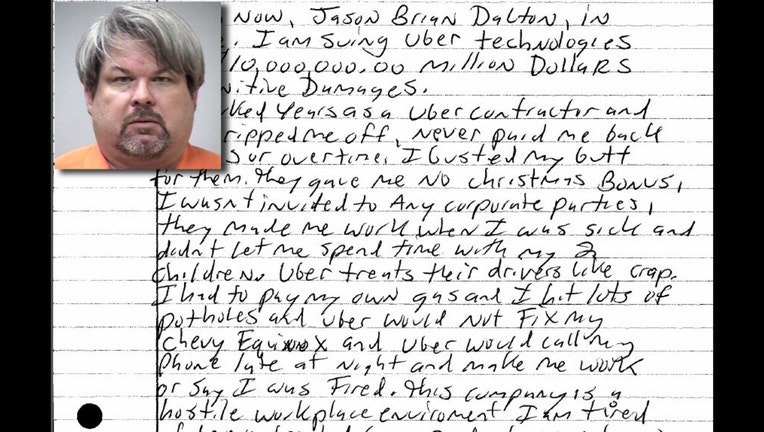 Now, Jason Brian Dalton, in
I am suing Uber technologies
10,000,000.00 million Dollars
Damages.
Years as a Uber contractor and
ripped me off, never paid me back
or overtime, I busted my butt
for them. they gave me no christmas Bonus,
I wasn't invited to Any corporate parties,
they made me work when I was sick and
didn't let me spend time with my 2
children. Uber treats their drivers like crap.
I had to pay my own gas and I hit lots of
potholes and Uber would not Fix my
Chevy Equinox and Uber would call my
phone late at night and make me work
or say I was Fired. this company is a
hostile workplace enviroment I am tired